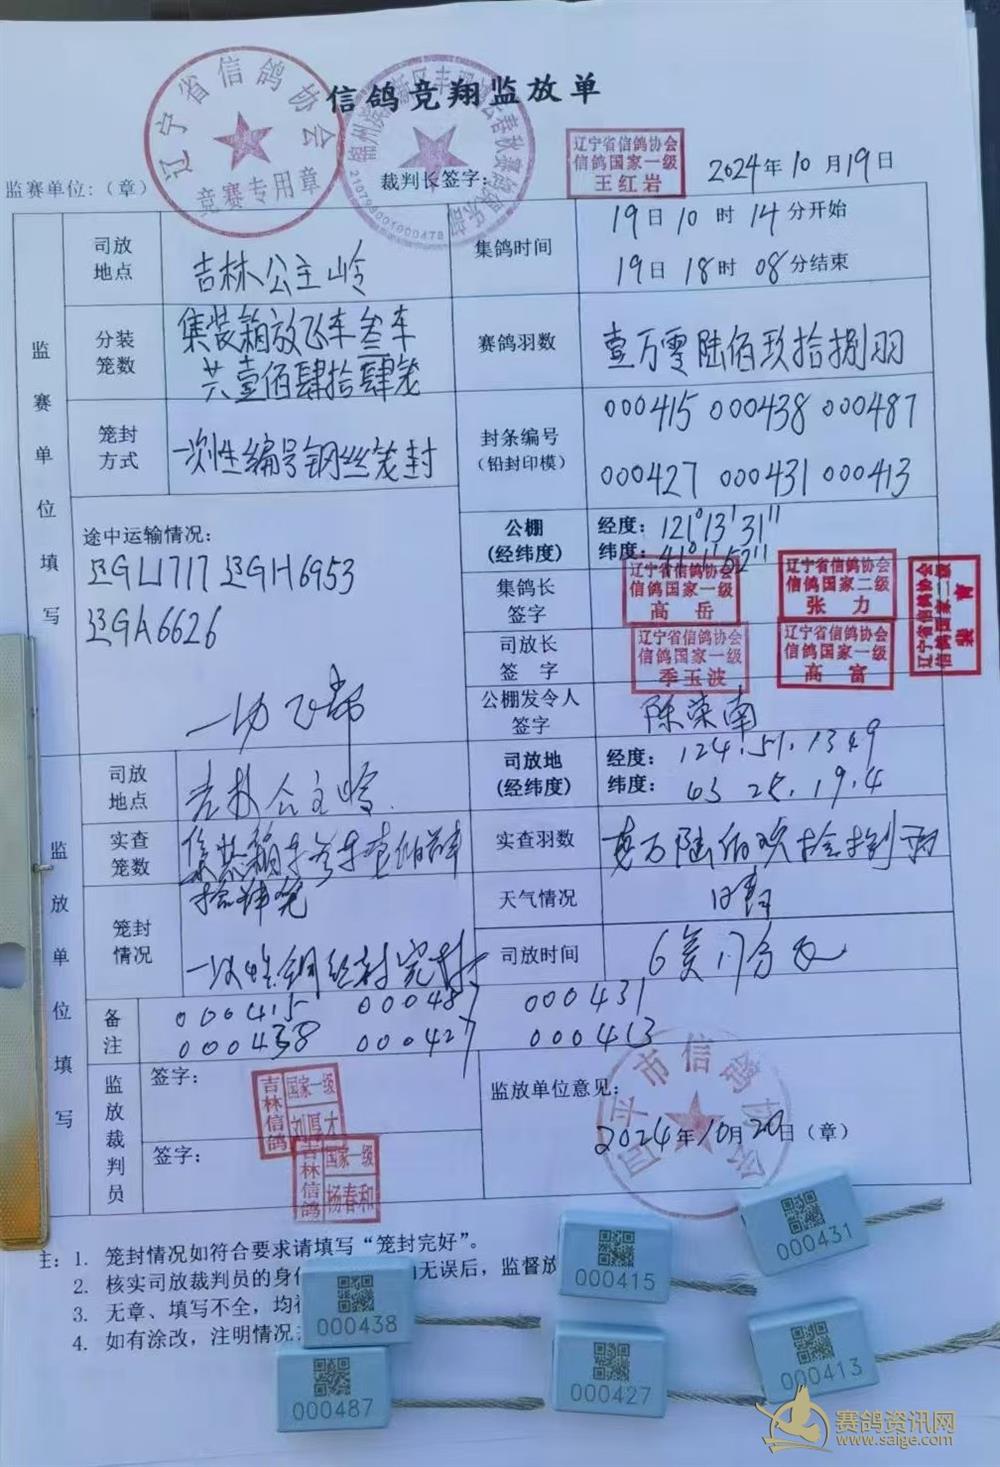 信鸽竞翔监放单
辽宁省信鸽协会
竞赛专用章
210799001000478
监赛单位:（章）
裁判长签字:
辽宁省信鸽协会
信鸽国家一级
王红岩
2024年10月19日
监赛单位填写
司放地点
吉林公主岭
集鸽时间
19日10时14分开始
19日18时08分结束
分装笼数
集装箱放飞车叁车
共壹佰肆拾肆笼
赛鸽羽数
壹万零陆佰玖拾捌羽
笼封方式
一次性编号钢丝笼封
封条编号
(铅封印模)
000415 000438 000487
000427 000431 000413
途中运输情况:
辽GL1717 辽GH6953
辽GA6626
公棚
(经纬度)
经度: 121°13′31″
纬度: 41°1′52″
集鸽长签字
辽宁省信鸽协会
信鸽国家一级
高岳
辽宁省信鸽协会
信鸽国家二级
张力
辽宁省信鸽协会
信鸽国家二级
司放长签字
辽宁省信鸽协会
信鸽国家一级
季玉波
辽宁省信鸽协会
信鸽国家一级
高富
公棚发令人签字
陈荣南
监放单位填写
司放地点
吉林公主岭
司放地
(经纬度)
经度: 124.51.1349
纬度: 43 25.19.4
实查笼数
实查羽数
笼封情况
天气情况
晴
司放时间
备注
000415 000487 000431
000438 000427 000413
监放裁判员
签字:
吉林信鸽
国家一级
刘厚才
签字:
吉林信鸽
国家一级
杨春和
监放单位意见:
四平市信鸽协会
2024年10月20日（章）
主: 1. 笼封情况如符合要求请填写“笼封完好”。
2. 核实司放裁判员的身 无误后，监督放
3. 无章、填写不全，均
4. 如有涂改，注明情况
000431
000415
000438
000413
000427
000487
赛鸽资讯网
www.saige.com